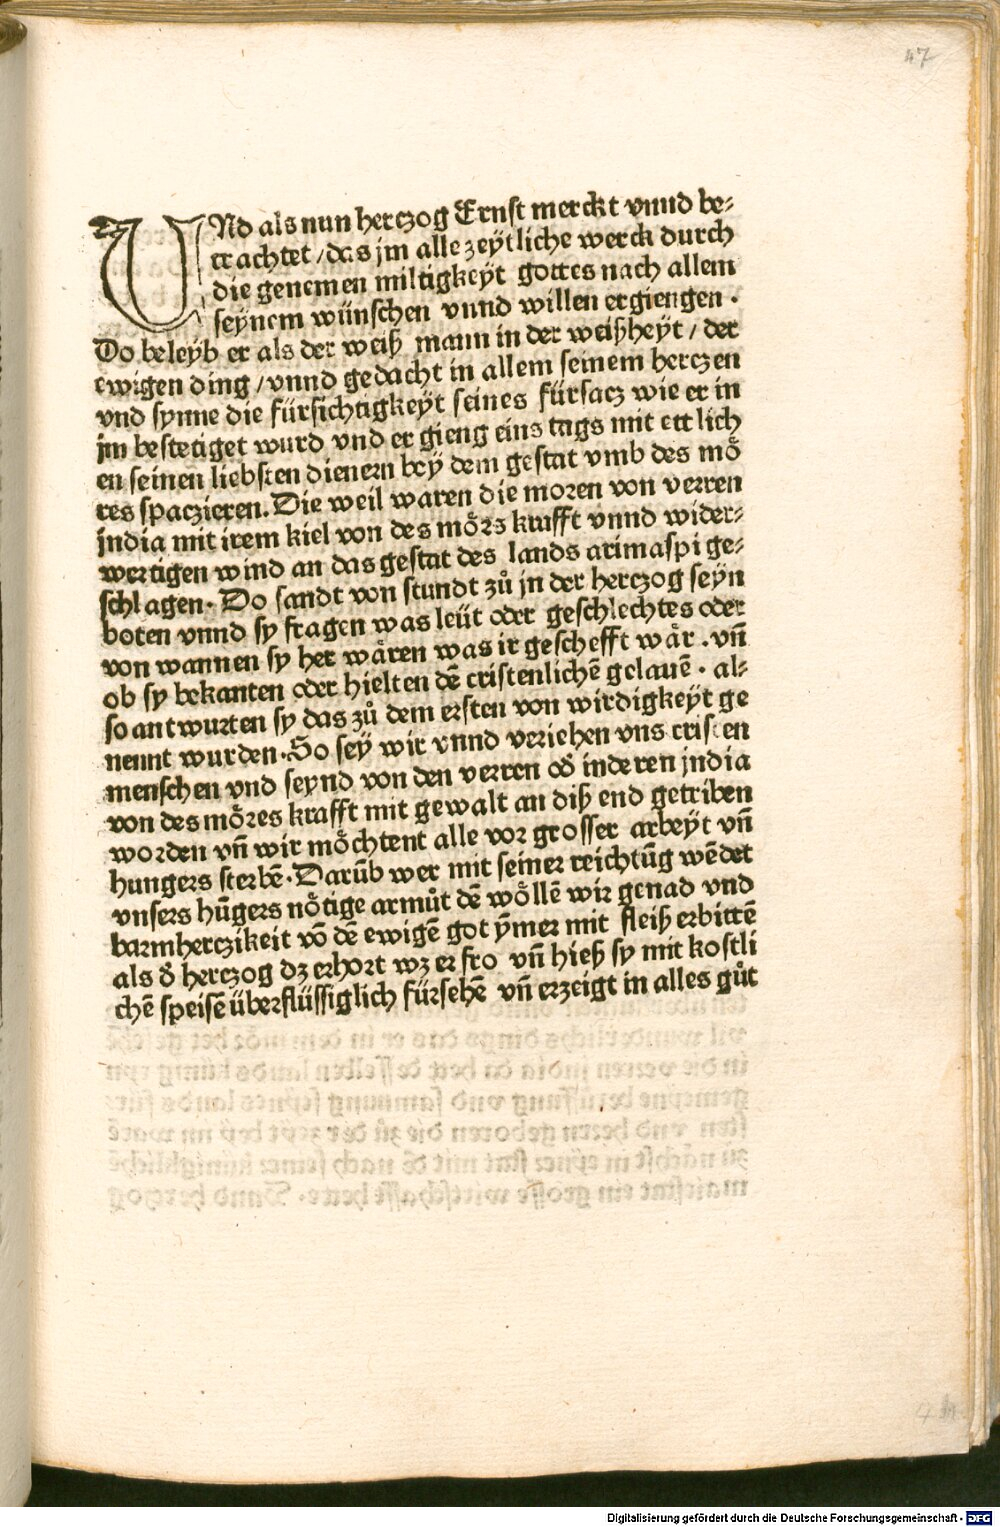 47
VNd als nun herczog Ernst merckt vnnd be⸗
trachtet /das jm alle zeytliche werck durch
die genemen miltigkeÿt gottes nach allem
seÿnem wünschen vnnd willen ergiengen .
Do beleÿb er als der weiß mann in der weißheÿt / der
ewigen ding /vnnd gedacht in allem seinem herczen
vnd sÿnne die fürsichtigkeÿt seines fürsacz wie er in
jm bestetiget wurd vnd er gieng eins tags mit ettlich
en seinen liebsten dienern beÿ dem gestat vmb des moͤ
res spaczieren. Die weil waren die moren von verren
jndia mit irem kiel von des moͤrs krafft vnnd wider⸗
wertigen wind an das gestat des lands arimaspi ge⸗
schlagen. Do sandt von stundt zuͦ jn der herczog seÿn
boten vnnd sy fragen was leüt oder geschlechtes oder
von wannen sy her waͤren was ir geschefft waͤr . vn̄
ob sy bekanten oder hielten dē cristenlichē gelauē . al⸗
so antwurten sy das zuͦ dem ersten von wirdigkeÿt ge
nennt wurden. So seÿ wir vnnd veriehen vns cristen
menschen vnd seÿnd von den verren od̓ inderen jndia
von des moͤres krafft mit gewalt an diß end getriben
worden vn̄ wir moͤchtent alle vor grosser arbeÿt vn̄
hungers sterbē. Darūb wer mit seiner reichtūg wēdet
vnsers hūgers noͤtige armuͦt dē woͤllē wir genad vnd
barmherczikeit vō dē ewigē got ÿmer mit fleiß erbittē
als d̓ herczog dz erhort wz er fro vn̄ hieß sy mit kostli
chē speisē überflüssiglich fürsehē vn̄ erzeigt in alles guͦt
Digitalisierung gefördert durch die Deutsche Forschungsgemeinschaft - DFG